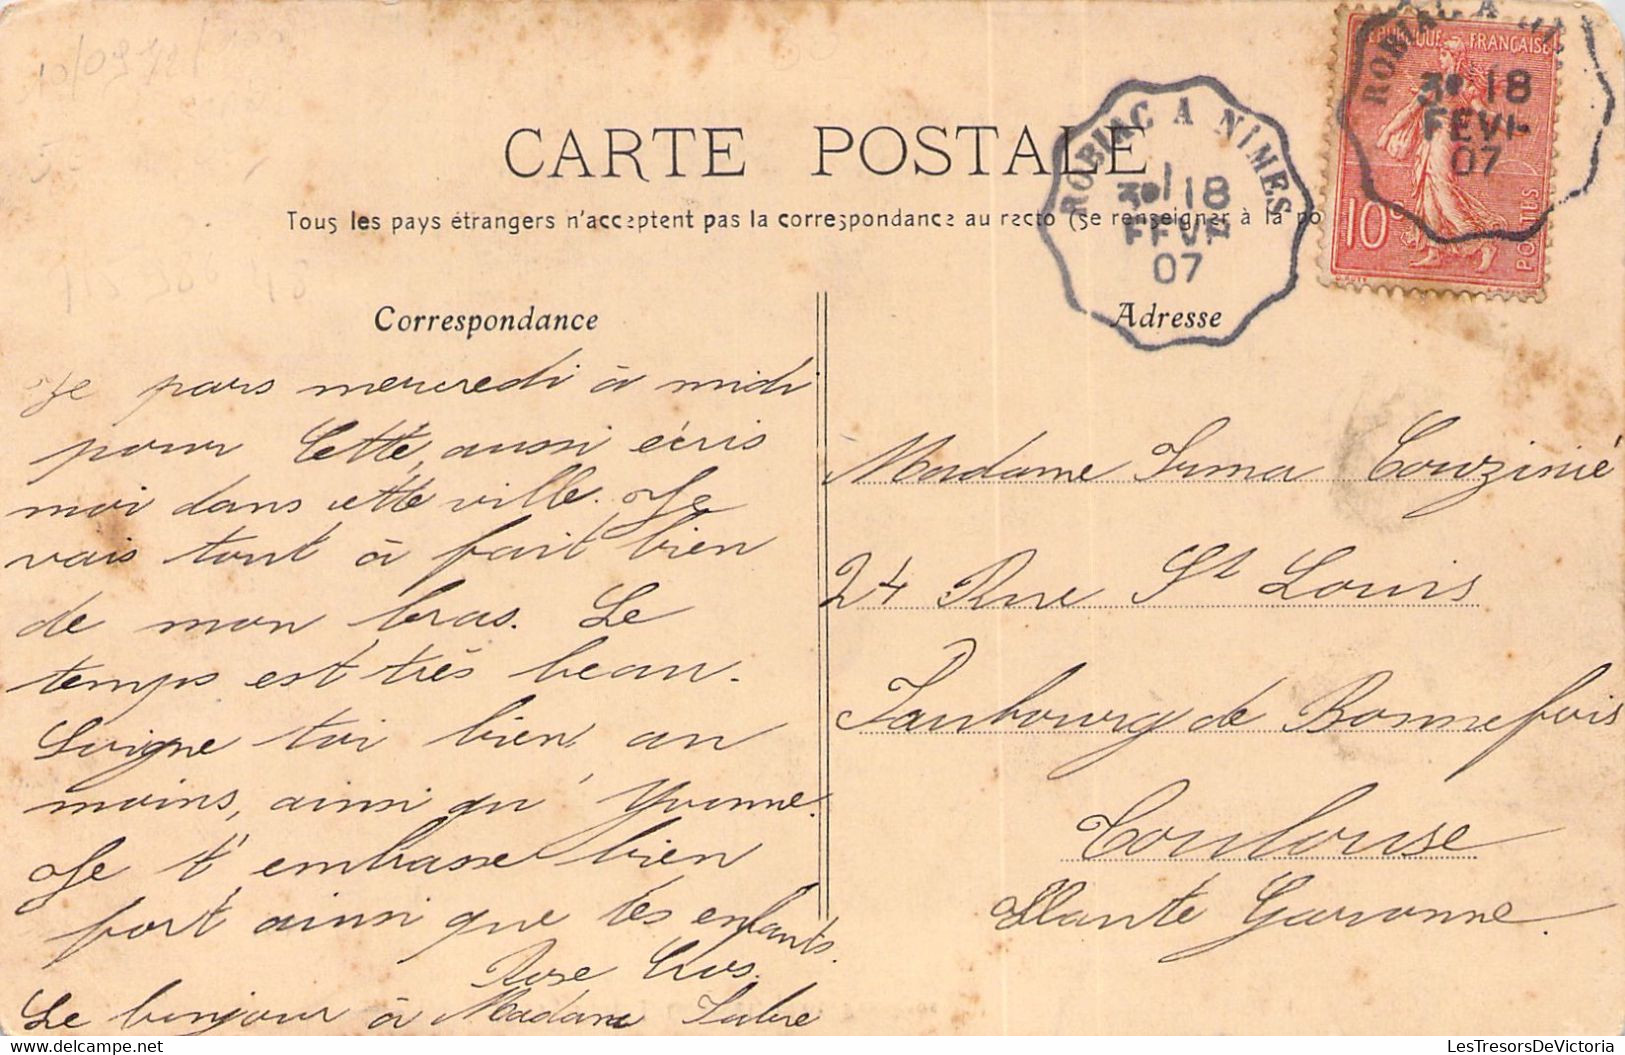 CARTE POSTALE
Tous les pays étrangers n'acceptent pas la correspondance au recto (se renseigner à la po
ROBIAC A NIMES
3e 18
FEVR
07
REPUBLIQUE FRANÇAISE
10c
POSTES
ROBIAC A NI
3e 18
FEVR
07
Correspondance
Je pars mercredi à midi
pour Cette, aussi écris
moi dans cette ville. Je
vais tout à fait bien
de mon bras. Le
temps est très beau.
Soigne toi bien, au
moins, ainsi qu' Yvonne.
Je t'embrasse bien
fort ainsi que tes enfants.
Rose Cros.
Le bonjour à Madame Fabre
Adresse
Madame Irma Couzinié
24 Rue St Louis
Faubourg de Bonnefois
Toulouse
Haute Garonne.
LesTresorsDeVictoria.com
LesTresorsDeVictoria